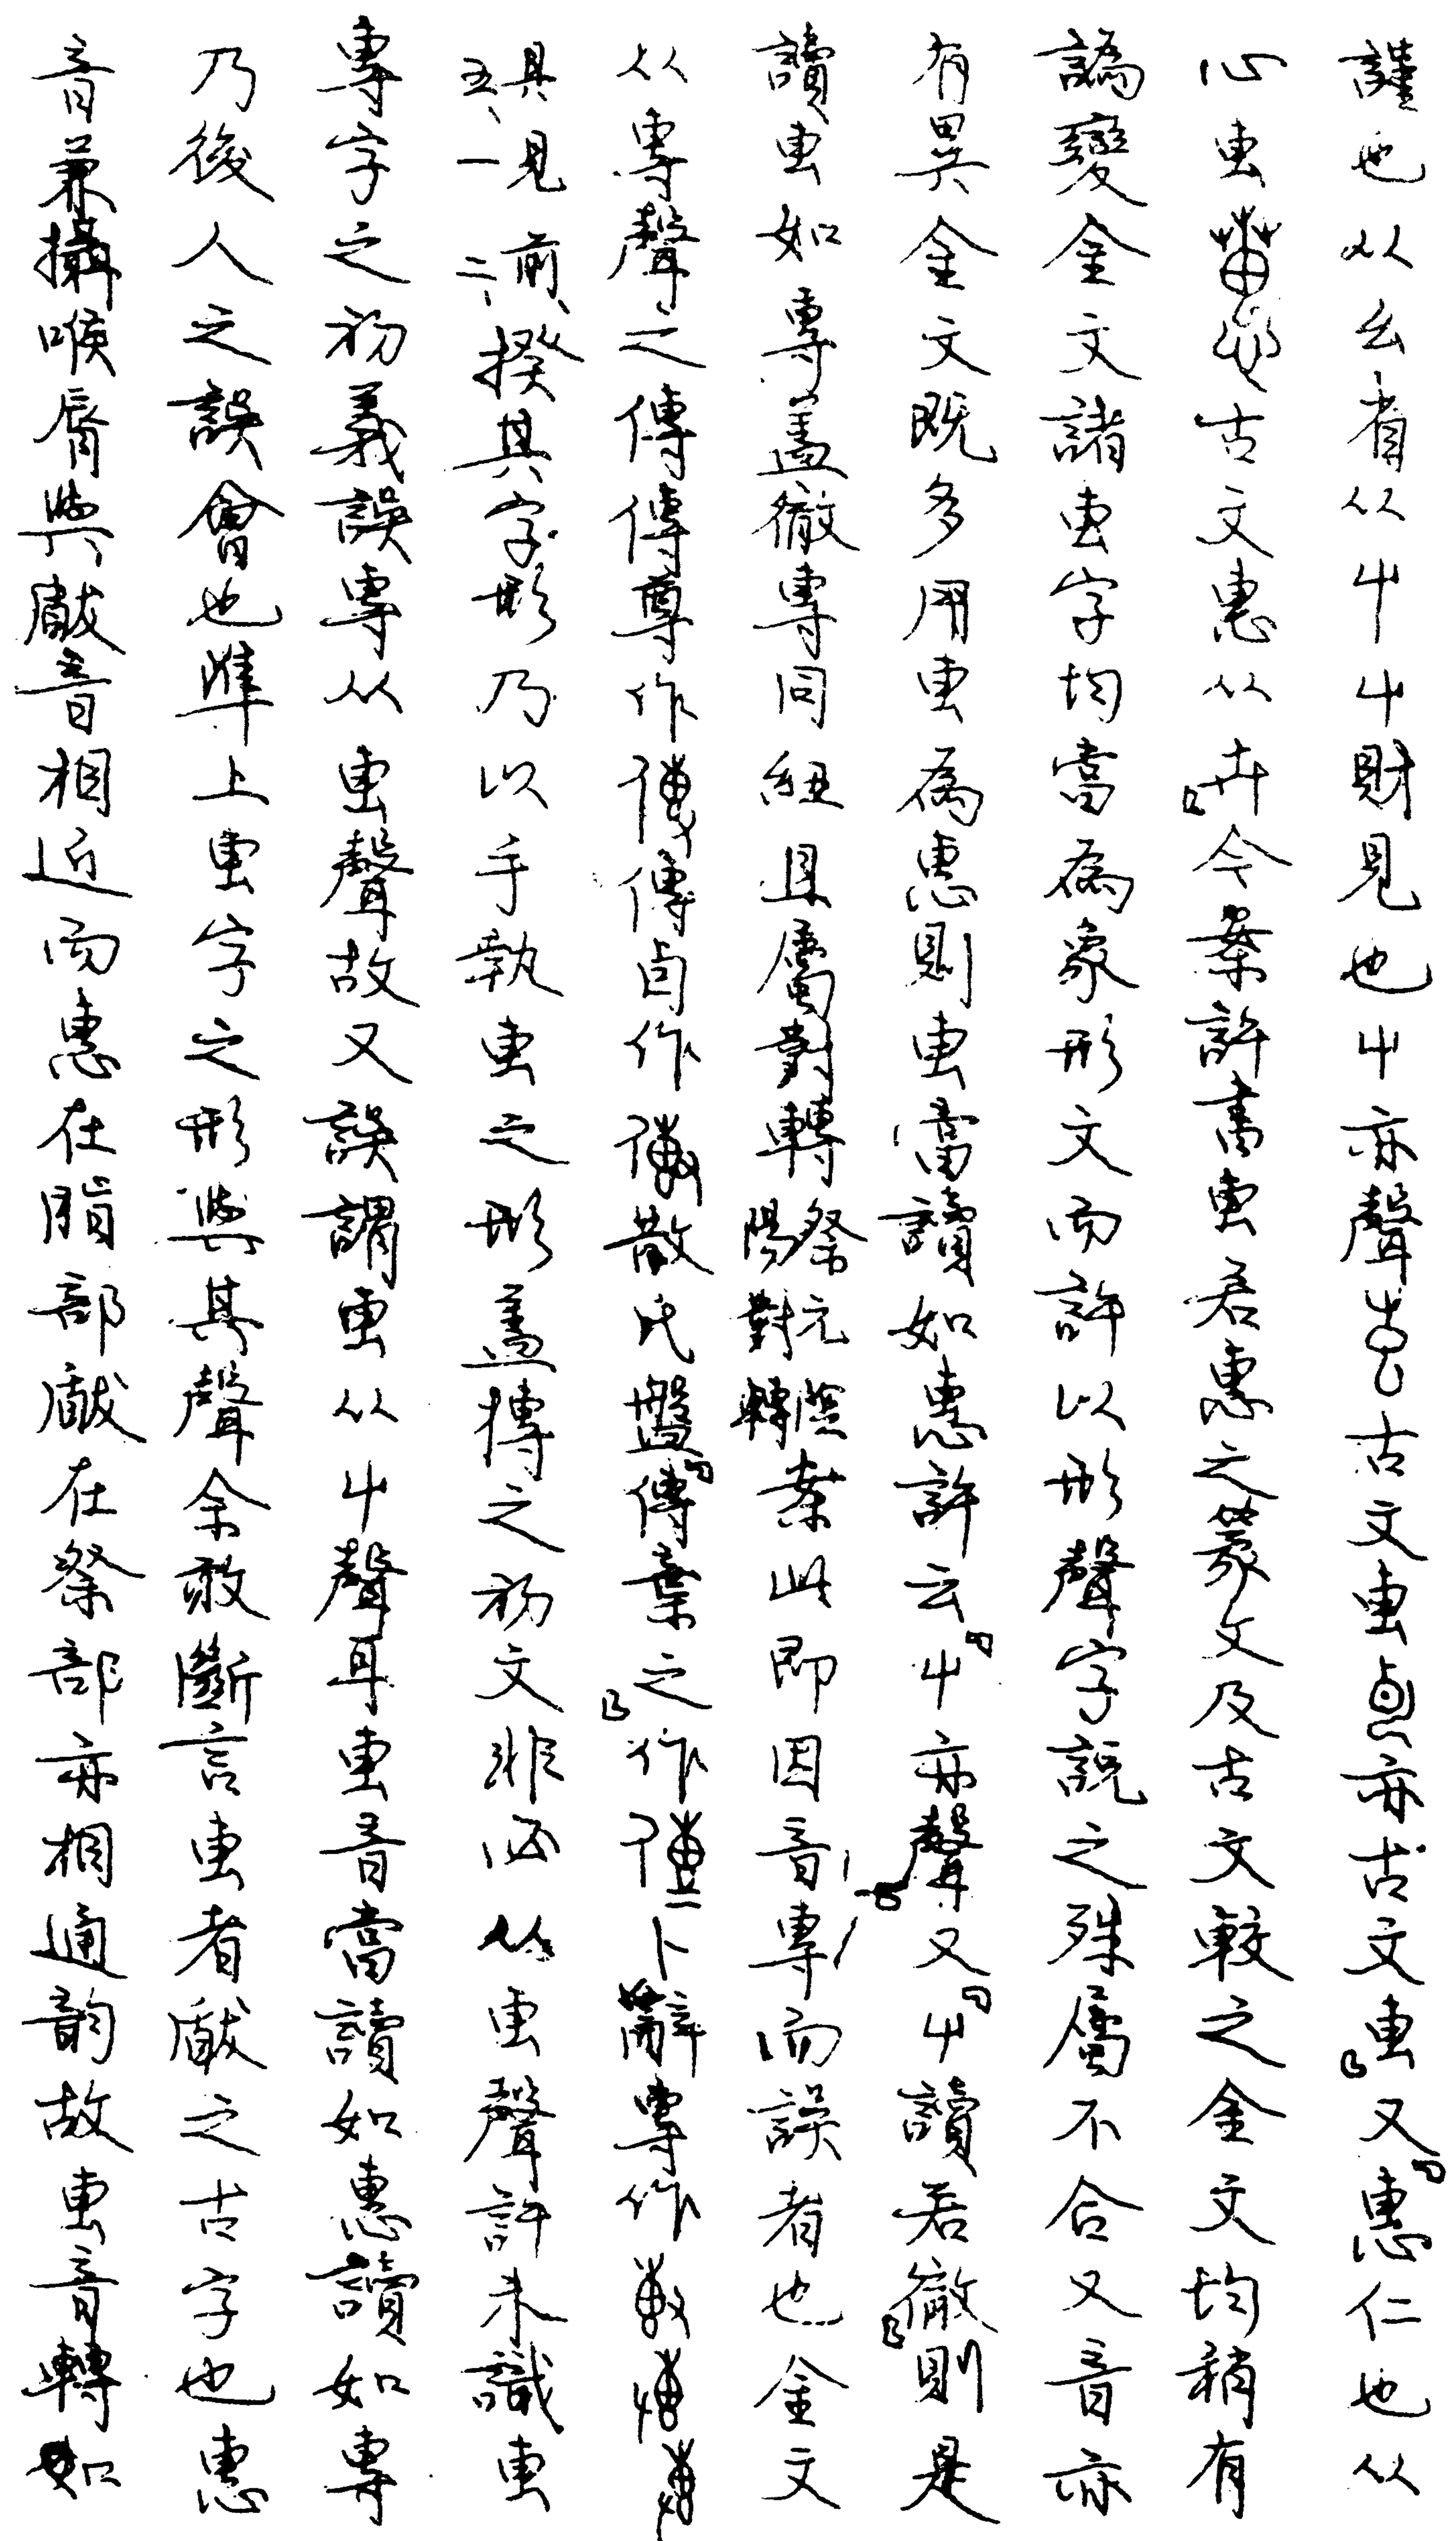 謹也从幺省从屮屮財見也屮亦聲古文叀亦古文叀」又「惠仁也从
心叀古文惠从卉」今案許書叀若惠之篆文及古文較之金文均稍有
譌變金文諸叀字均當為象形文而許以形聲字説之殊屬不合又音亦
有異金文既多用叀為惠則叀當讀如惠許云「屮亦聲」又「屮讀若徹」則是
讀叀如專蓋徹專同紐且屬對轉祭元陰陽對轉案此即因音專而誤者也金文
从專聲之傳傳尊作傳卣作散氏盤「傳棄之」作卜辭專作
具見前五、一二、揆其字形乃以手執叀之形蓋摶之初文非必从叀聲許未識叀
專字之初義誤專从叀聲故又誤謂叀从屮聲耳叀音當讀如惠讀如專
乃後人之誤會也準上叀字之形與其聲余敢斷言叀者瞂之古字也惠
音兼攝喉脣與瞂音相近而惠在脂部瞂在祭部亦相通韵故叀音轉如